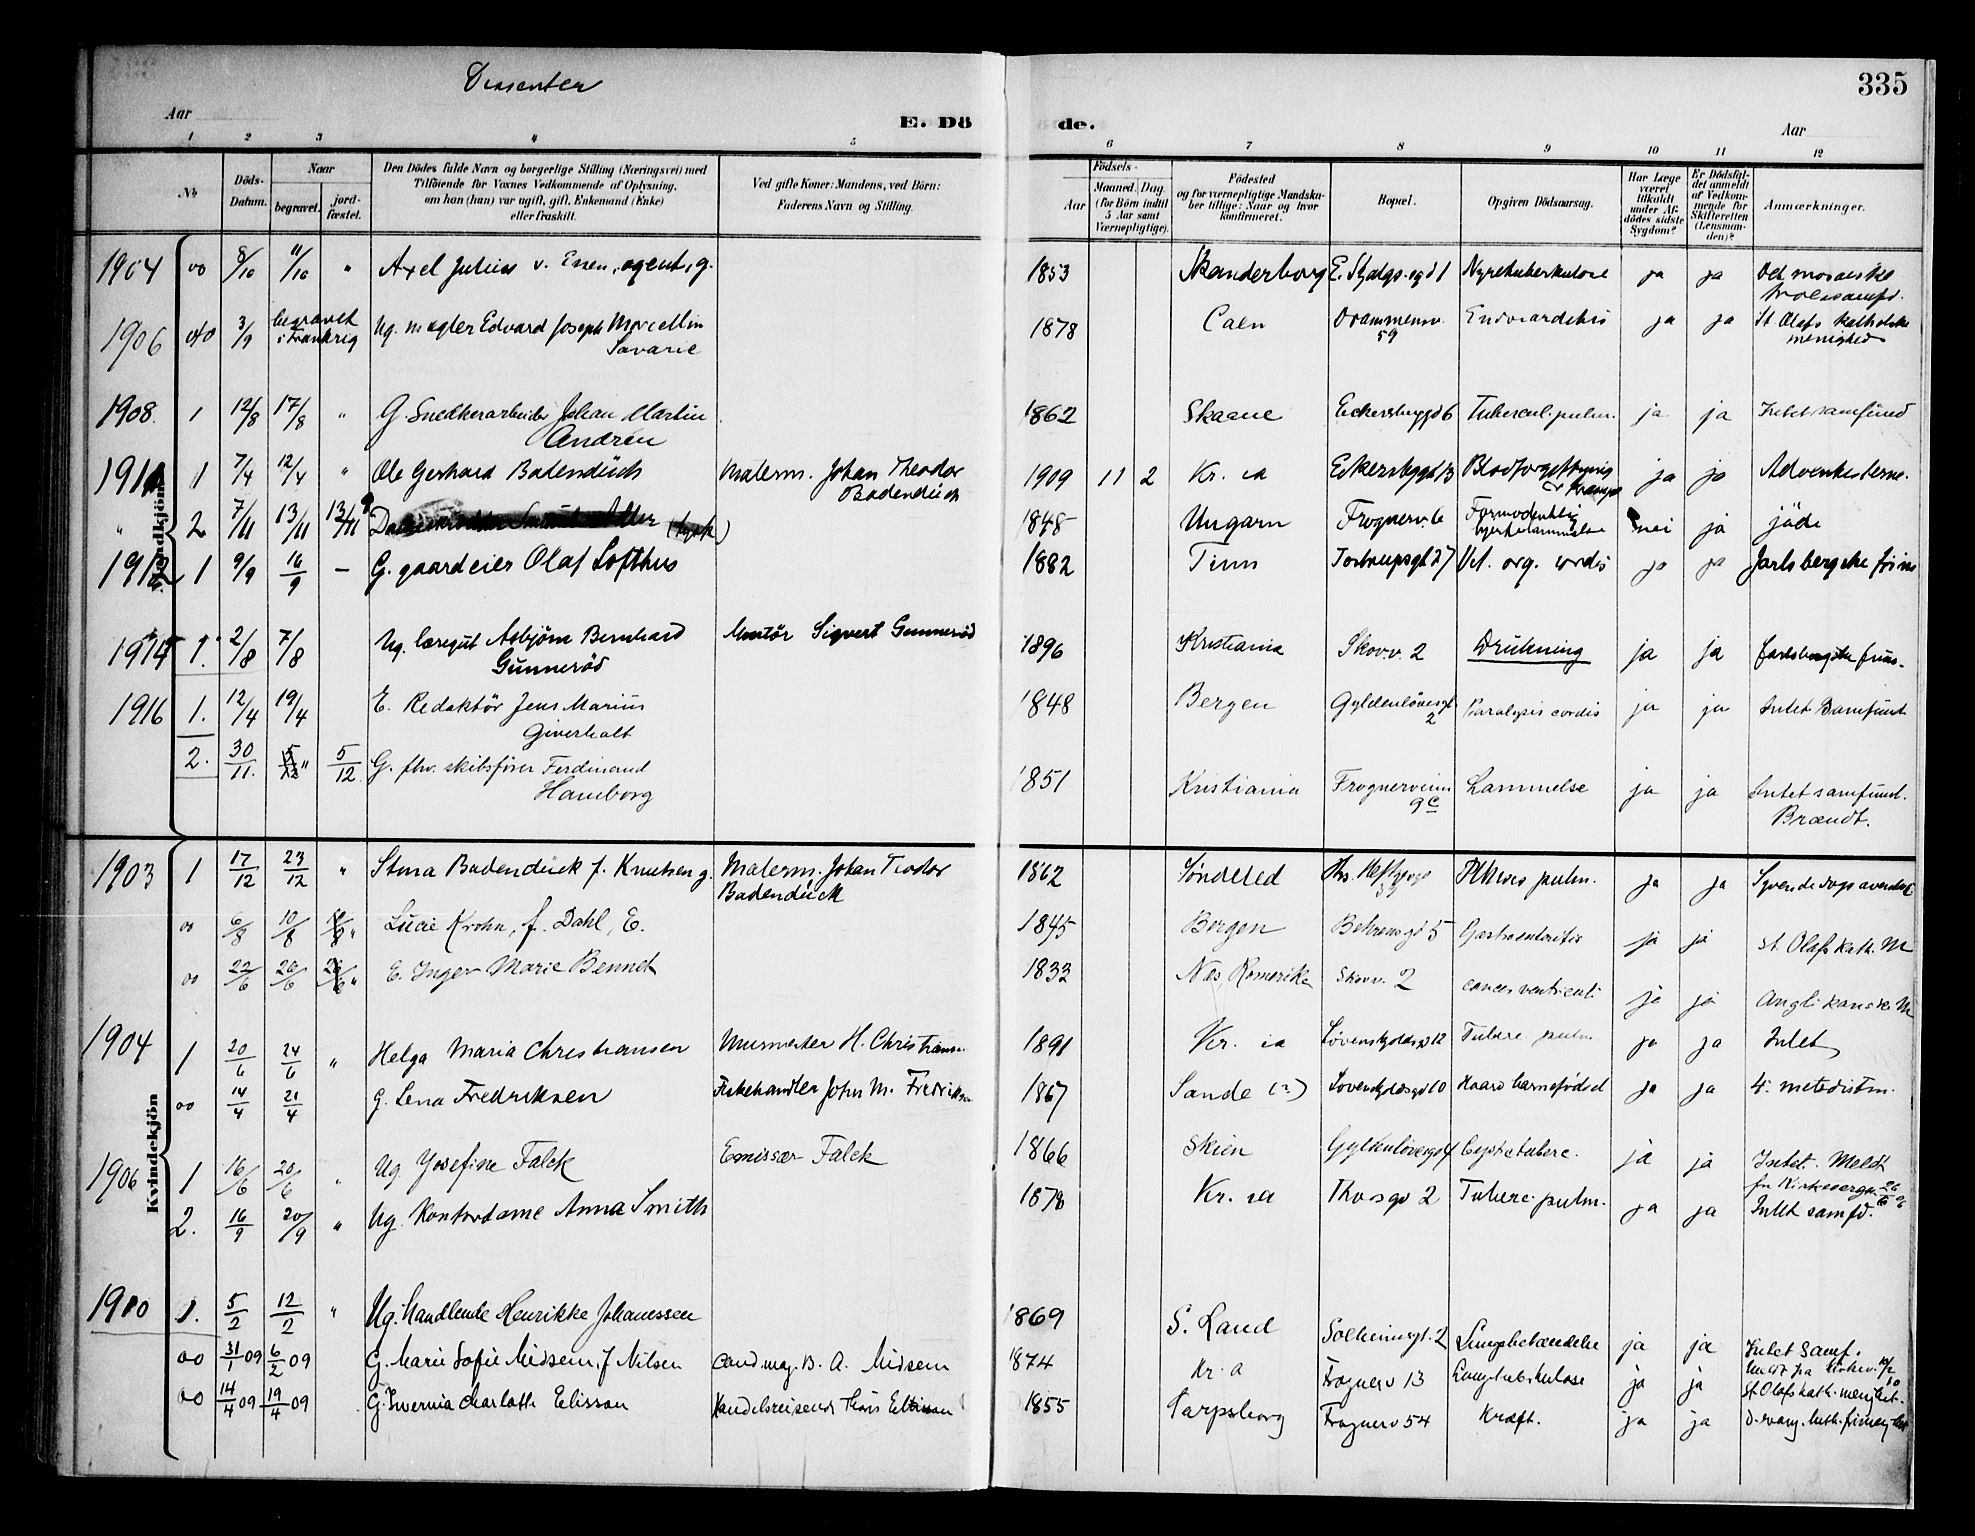 Dissenter
335
Aar
E. Dö
de.
Aar
1 2 3 4 5 6 7 8 9 10 11 12
No
Döds-
Datum.
Naar
begravet.
jord-
fæstet.
Den Dödes fulde Navn og borgerlige Stilling (Næringsvei) med
Tilföiende for Voxnes Vedkommende af Oplysning,
om han (hun) var ugift, gift, Enkemand (Enke)
eller fraskilt.
Ved gifte Koner: Mandens, ved Börn:
Faderens Navn og Stilling.
Födsels-
Aar
Maaned. Dag.
(for Börn indtil
5 Aar samt
Værnepligtige).
Födested
og for værnepligtige Mandska-
ber tillige: Naar og hvor
konfirmeret.
Bopæl.
Opgiven Dödsaarsag.
Har Læge
været
tilkaldt
under Af-
dödes sidste
Sygdom?
Er Dödsfal-
det anmeldt
af Vedkom-
mende for
Skifteretten
(Lensman-
den)?
Anmærkninger.
Mandkjön
1904 oo 8/10 11/10 " Axel Julius v. Essen, agent, g. 1853 Skanderborg E. Skjolgs.gd 1 Nyretuberkulose ja ja Det mosaiske
troessamfd.
1906 3/9 begravet
i Frankrig Ug. mægler Edvard Joseph Marcellin
Savarie 1878 Caen Drammensv.
59 Endocarditis ja ja St Olafs katholske
menighed
1908. 1 12/8 17/8 " G. Snedkerarbeider Johan Martin
Andrén 1862 Skaane Eckersbergd 6 Tubercul. pulm. ja ja Intet samfund
1911 1 7/4 12/4 " Ole Gerhard Badendück Malerm. Johan Theodor
Badendück 1909 11 2 Kr. ia Eckersbgt 13 Blodforgiftning
& krampe ja ja Adventisterne.
" 2 7/11 13/11 13/11 (tysk) 1848 Ungarn Frognerv. 6 Formodentlig
hjertelammelse nei ja jöde
1912 1 9/9 16/9 – G. gaardeier Olaf Lofthus 1882 Tinn Tostrupsgt 27 Vit. org. cordis ja ja Jarlsbergske frim
1914 1. 2/8 7/8 Ug. læregut Asbjörn Bernhard
Gunneröd Montör Sigvert Gunneröd 1896 Kristiania Skovv. 2 Drukning ja ja Jarlsbergske frim.
1916 1. 12/4 19/4 E. Redaktör Jens Marius
Giverholt 1848 Bergen Gyldenlövesgt
2 Paralysis cordis ja ja Intet Samfund
2. 30/11. " 5/12. G. fhv. skibsförer Ferdinand
Hamborg 1851 Kristiania Frognerveien
9c Lammelse ja ja Intet samfund.
Brændt.
Kvindekjön
1903 1 17/12 23/12 " Stina Badendück f. Knutsen g. Malerm. Johan Teodor
Badendück 1862 Söndeled Ths. Heftyesgd
Phtisis pulm. ja ja Syvende dags advent
oo 6/8 10/8 " Lucie Krohn, f. Dahl, E. 1845 Bergen Behrensgd 5 Gastroenteritis ja ja St. Olafs kath. M
oo 22/6 26/6 " E. Inger Marie Bennet 1833 Nes, Romerike Skovv. 2 cancer ventriculi ja ja Anglikanske M
1904 1 20/6 24/6 " Helga Maria Christiansen Murmester H. Christians. 1891 Kr. ia Lövenskjoldsgd 12 Tuberc pulm. ja ja Intet
oo 14/4 21/4 G. Lena Fredriksen Fiskehandler John M. Fredriksen 1867 Sande (?) Lövenskjoldsgd 10 Haard barnefödsel ja ja 4. metodistm.
1906 1 16/6 20/6 " Ug. Josefine Falck Emissær Falck 1866 Skien Gyldenlövesgd 4 ja ja Intet. Meldt
fra Kirkeverge 26/6 06
2. 16/9 20/9 " Ug. Kontordame Anna Smith 1878 Kr. ia Thosgd 2 Tuberc. pulm. ja ja Intet samfd.
1910 1. 5/2 12/2 " Ug. Handlende Henrikke Johanssen 1869 S. Land Solheimsgt. 2 Lungebetændelse ja ja Intet Samf.
Meldt fra Kirkev. 10/2 10
oo 31/1 09 6/2 09 G. Marie Sofie Midsem, f Nilsen cand. mag. B. A. Midsem 1874 Kr. a Frognerv 13 Lungtuberkulose ja ja St Olafs kath. menighet.
oo 14/4 09 19/4 09 G. Ivernia Charlotte Elisson Handelsreisende Thors Ellisson 1855 Sarpsborg Frognerv 54 Kræft. ja ja D. evang. luth. frimenighet